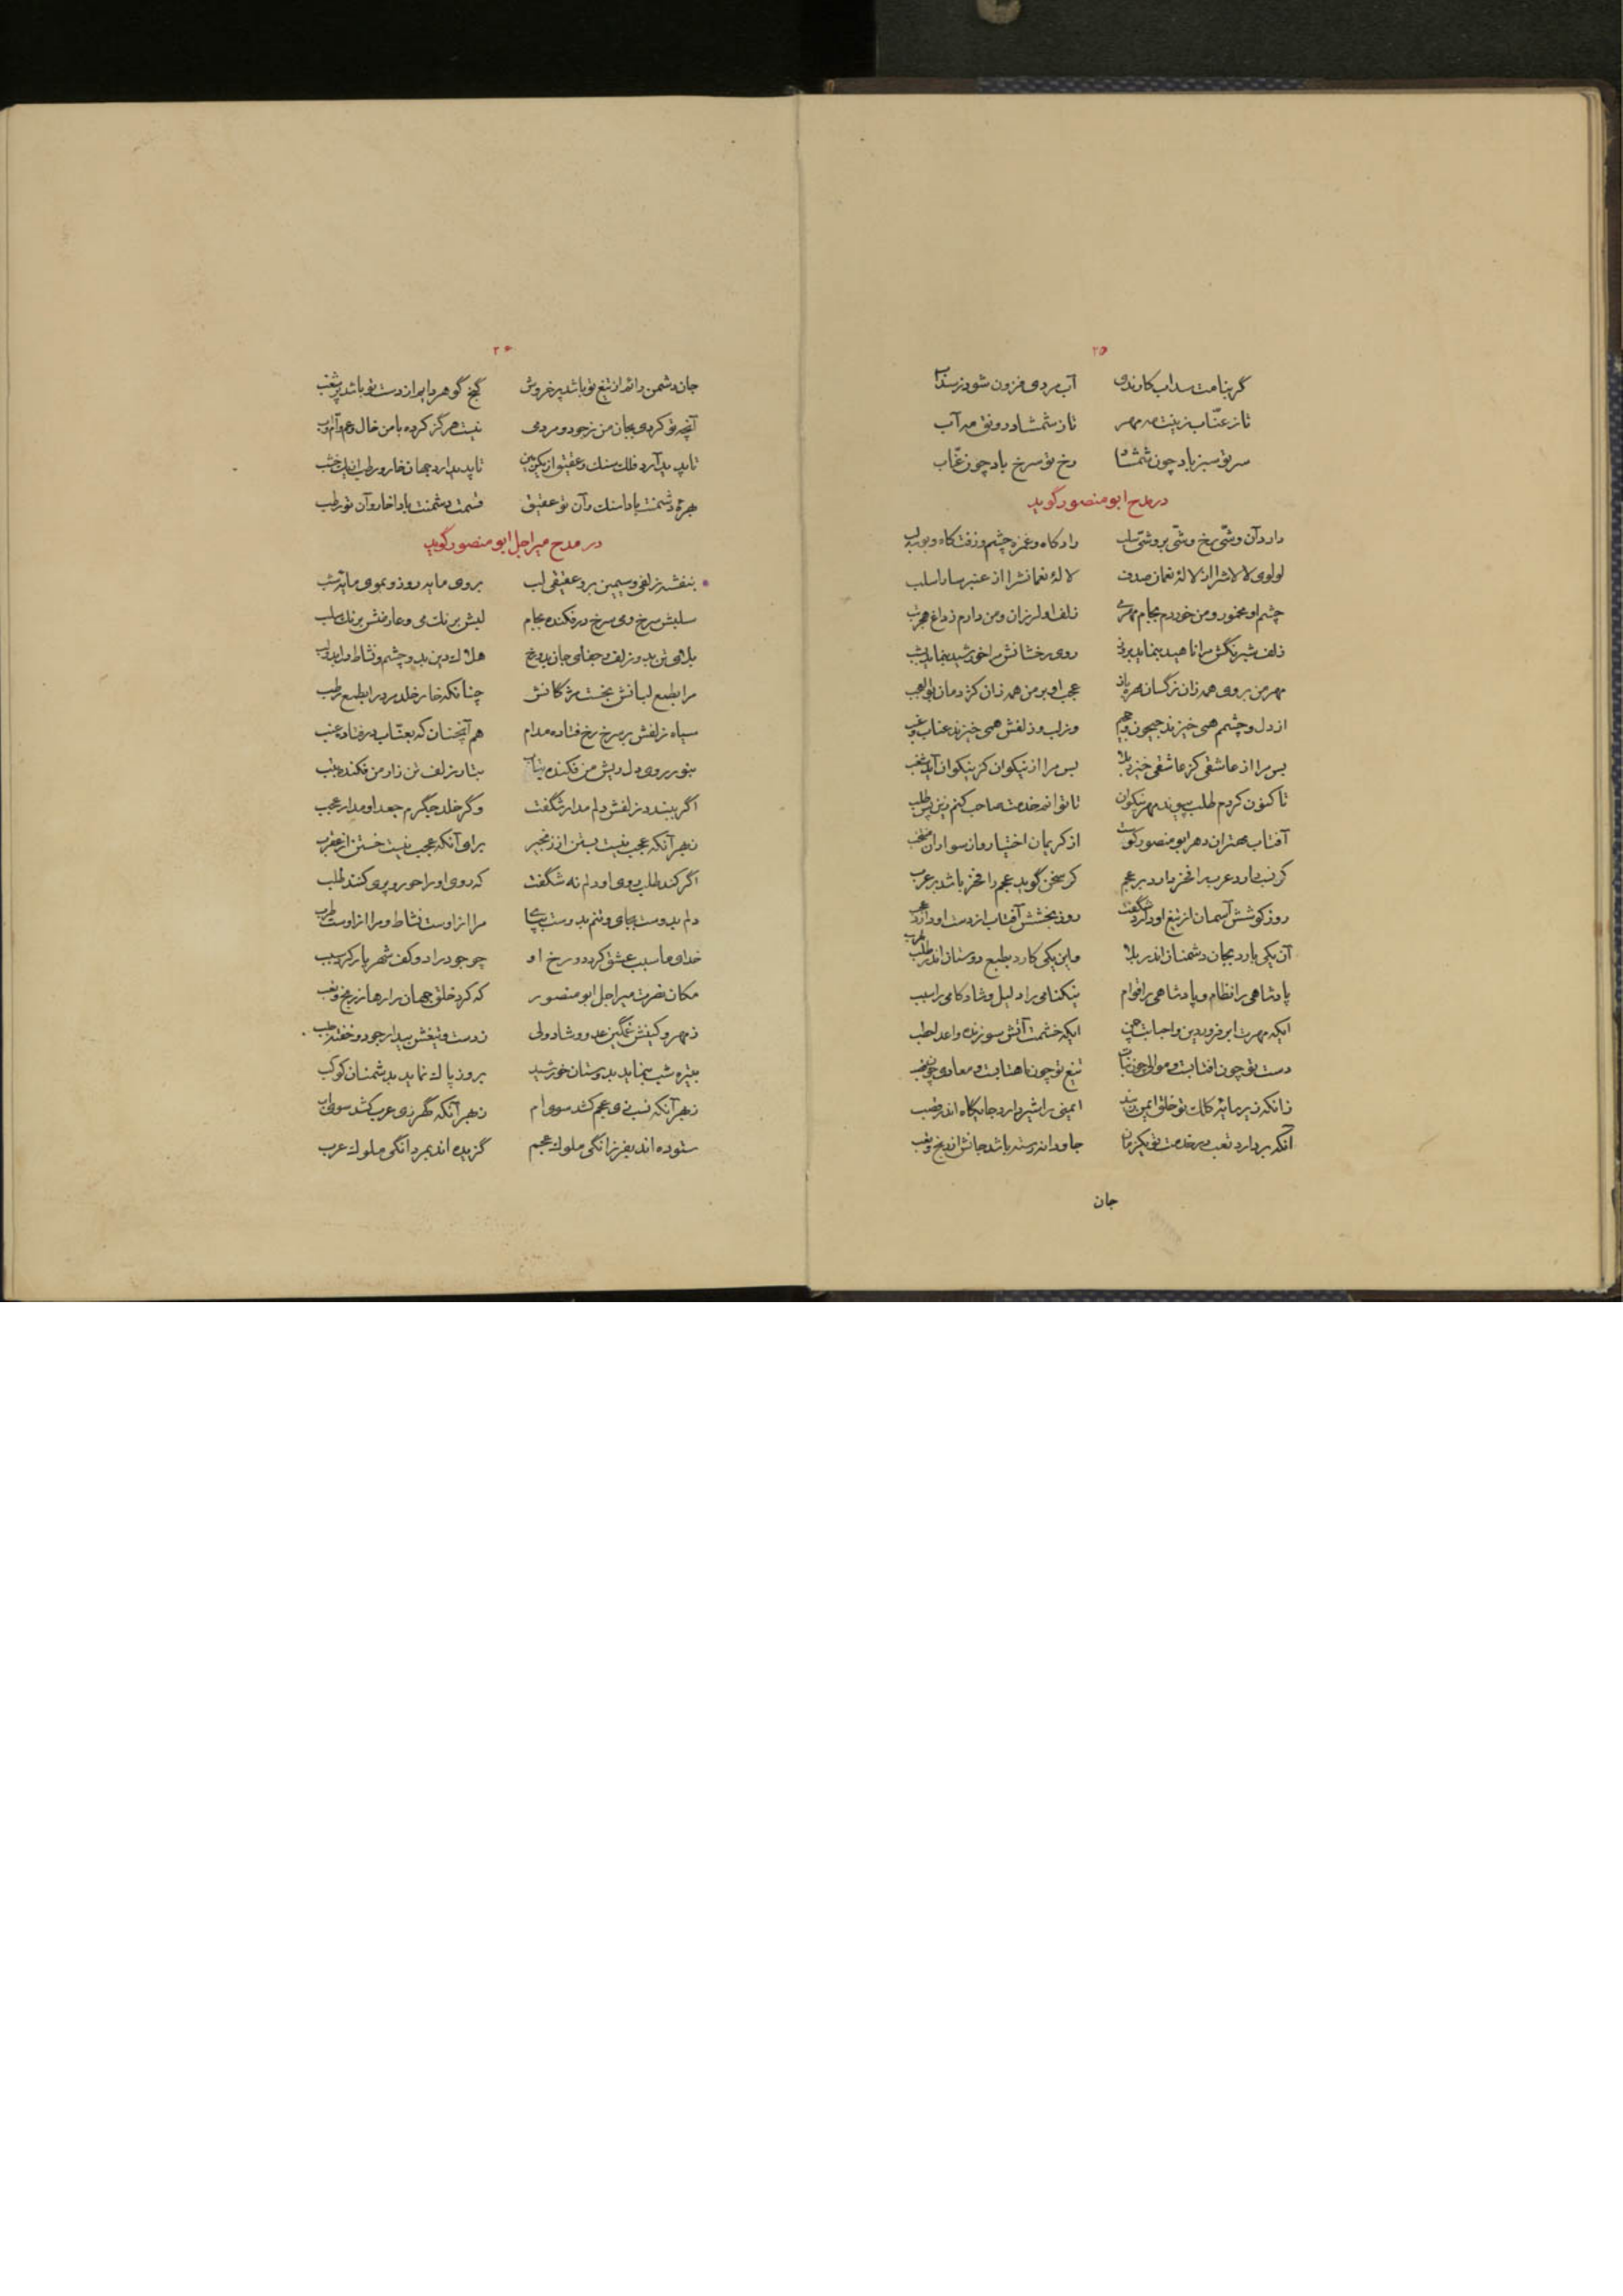 ۲۵
گر بنامت سداب کارندی آب مردی فزون شود ز سنداب
تا ز عنّاب زینت مه مهر تا ز شمشاد رونق مه آب
سر تو سبز باد چون شمشاد رخ تو سرخ باد چون عنّاب
در مدح ابو منصور گوید
دارد آن وشّی رخ وشّی بر وشّی سلب
لولوی لالاش را از لالهٔ نعمان صدف لالهٔ نعمانش را از عنبر سارا سلب
چشم او مخمور و من خوردم بجام مهر می زلف او لرزان و من دارم ز داغ هجر تب
زلف شبرنگش مرا ناهید بنماید بروز روی رخشانش مرا خورشید بنماید بشب
مهر من بر وی همه زان نرگسان مهره باز عجب او بر من همه زان کژدمان بوالعجب
از دل و چشمم همی خیزند جیحون و جحیم وز لب و زلفش همی خیزند عناب و عنب
بس مرا از عاشقی کز عاشقی خیزد بلا بس مرا از نیکوان کز نیکوان آید شغب
تا کنون کردم طلب پیوند مهر نیکوان تا توانم خدمت صاحب کنم زین پس طلب
آفتاب مهتران دهر ابو منصور کوست از کریمان اختیار و از سواران منتخب
کر نسب دارد عرب را فخر دارد بر عجم کر سخن گوید عجم را فخر باشد بر عرب
روز کوشش آسمان از تیغ او دارد شگفت روز بخشش آفتاب از دست او دارد عجب
آن یکی بارد بجان دشمنان اندر بلا و این یکی کارد بطبع دوستان اندر طرب
پادشاهی را نظام و پادشاهی را قوام نیکنامی را دلیل و شادکامی را سبب
ایکه مهرت ابر فروردین و احبابت چمن ایکه خشمت آتش سوزنده و اعدا حطب
دست تو چون افتابست و موالی چون نبات تیغ تو چون ماهتابست و معادی چون قصب
زانکه زیر سایهٔ کلک تو خلق ایمن شدند ایمنی را شیر دارد جایگاه اندر قصب
آنکه بردارد تعب در خدمت تو یکزمان جاودانه رسته باشد جانش از رنج و تعب
جان
۲۶
جان دشمن دائم از تیغ تو باشد پر خروش گنج گوهر دایم از دست تو باشد پر شغب
آنچه تو کردی بجان من ز جود و مردمی نیست هرگز کرده با من خال و عم و امّ و اب
تا پدید آرد فلک سنک و عقیق از یک زمین تا پدید آرد جهان خار و رطب از یک خشب
بهرهٔ دشمنت بادا سنک و آن تو عقیق قسمت دشمنت بادا خار و آن تو رطب
در مدح میر اجل ابو منصور گوید
بنفشه زلفی و سیمین بر و عقیقی لب بروی مایه روز و بموی مایهٔ شب
سلبش سرخ و می سرخ در فکنده بجام لبش برنک می و عارضش برنک سلب
بلای تن بد و زلف و جفای جان بدو رخ هلاک دین بدو چشم و نشاط دل بدو لب
مرا بطمع لبانش بخست مژکانش چنانکه خار خلد مرد را بطمع رطب
سیاه زلفش بر سرخ رخ فتاده مدام هم آنچنان که بعنّاب بر فتاده عنب
بنور روی دل ریش من فکنده بتاب بتار زلف تن زار من فکنده بتب
اگر ببندد زلفش دلم مدار شگفت وگر خلد جگرم جعد او مدار عجب
ز بهر آنکه عجب نیست بستن از زنجیر برای آنکه عجب نیست خستن از عقرب
اگر کند طلب روی او دلم نه شگفت که روی او را حور و پری کنند طلب
دلم بدوست بجای و تنم بدوست بپای مرا از اوست نشاط و مرا از اوست طرب
خدای ما سبب عشق کرد دو رخ او چو جود راد و کف شهریار کرد سبب
مکان نصرت میر اجل ابو منصور که کرد خلق جهان را رها ز رنج و تعب
ز مهر و کینش غمگین عدو و شاد ولی ز دست و تیغش بیدار جود و خفته
بتیره شب بنماید بدوستان خورشید بروز پاک نماید بدشمنان کوکب
ز بهر آنکه نسب زی عجم کشد سوی ام ز بهر آنکه گهر زی عرب کشد سوی اب
ستوده اند بفرزانگی ملوک عجم گزیده اند بمردانگی ملوک عرب